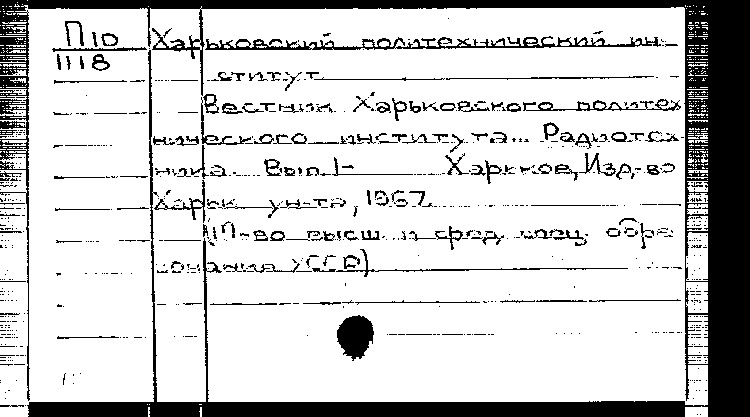 П10 Харьковский политехнический ин-
1118
ститут
Вестник Харьковского политех
нического института... Радиотех-
ника. Вып.1- Харьков, Изд-во
Харьк ун-та, 1967.
(М-во высш и сред спец. обра
зования УССР).